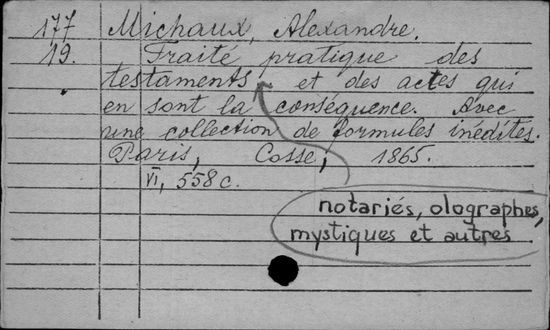 177 Michaux, Alexandre.
19. Traité pratique des
testaments et des actes qui
en sont la conséquence. Avec
une collection de formules inédites.
Paris, Cosse, 1865.
VI, 558 c.
notariés, olographes,
mystiques et autres